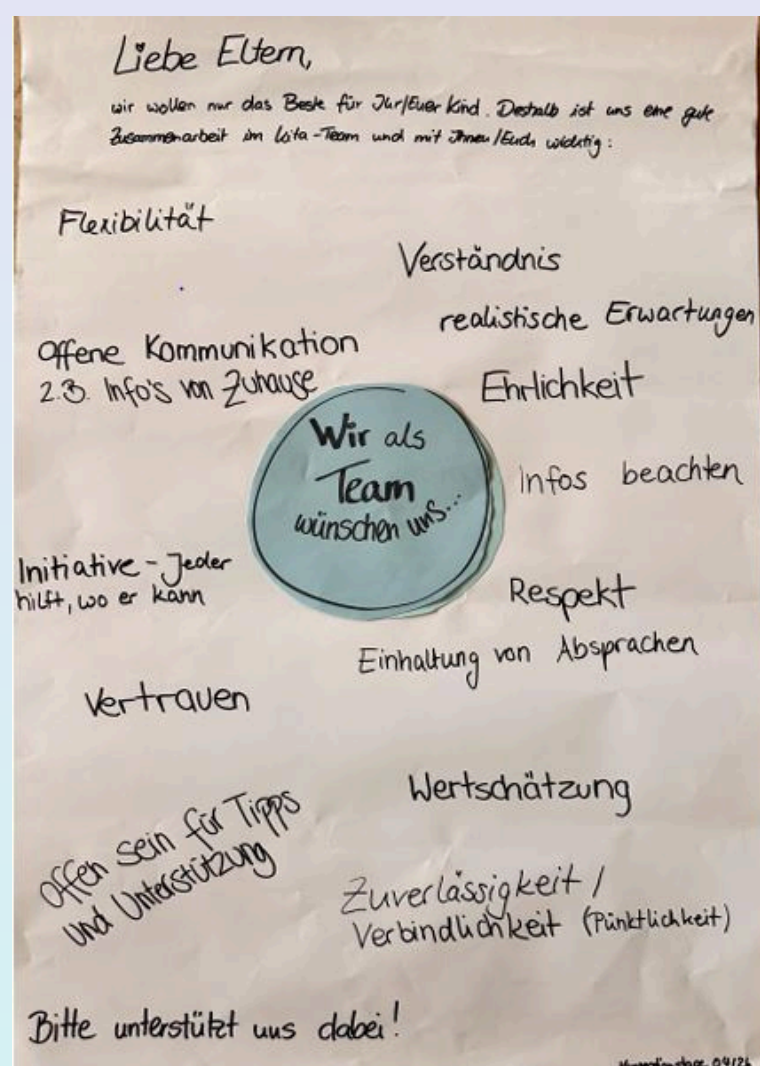 Liebe Eltern,
wir wollen nur das Beste für Ihr/Euer Kind. Deshalb ist uns eine gute
Zusammenarbeit im Kita-Team und mit Ihnen/Euch wichtig:
Flexibilität
Verständnis
realistische Erwartungen
Offene Kommunikation
z.B. Info's von Zuhause
Ehrlichkeit
Wir als
Team
wünschen uns...
Infos beachten
Initiative - Jeder
hilft, wo er kann
Respekt
Einhaltung von Absprachen
Vertrauen
Wertschätzung
Offen sein für Tipps
und Unterstützung
Zuverlässigkeit /
Verbindlichkeit (Pünktlichkeit)
Bitte unterstützt uns dabei!